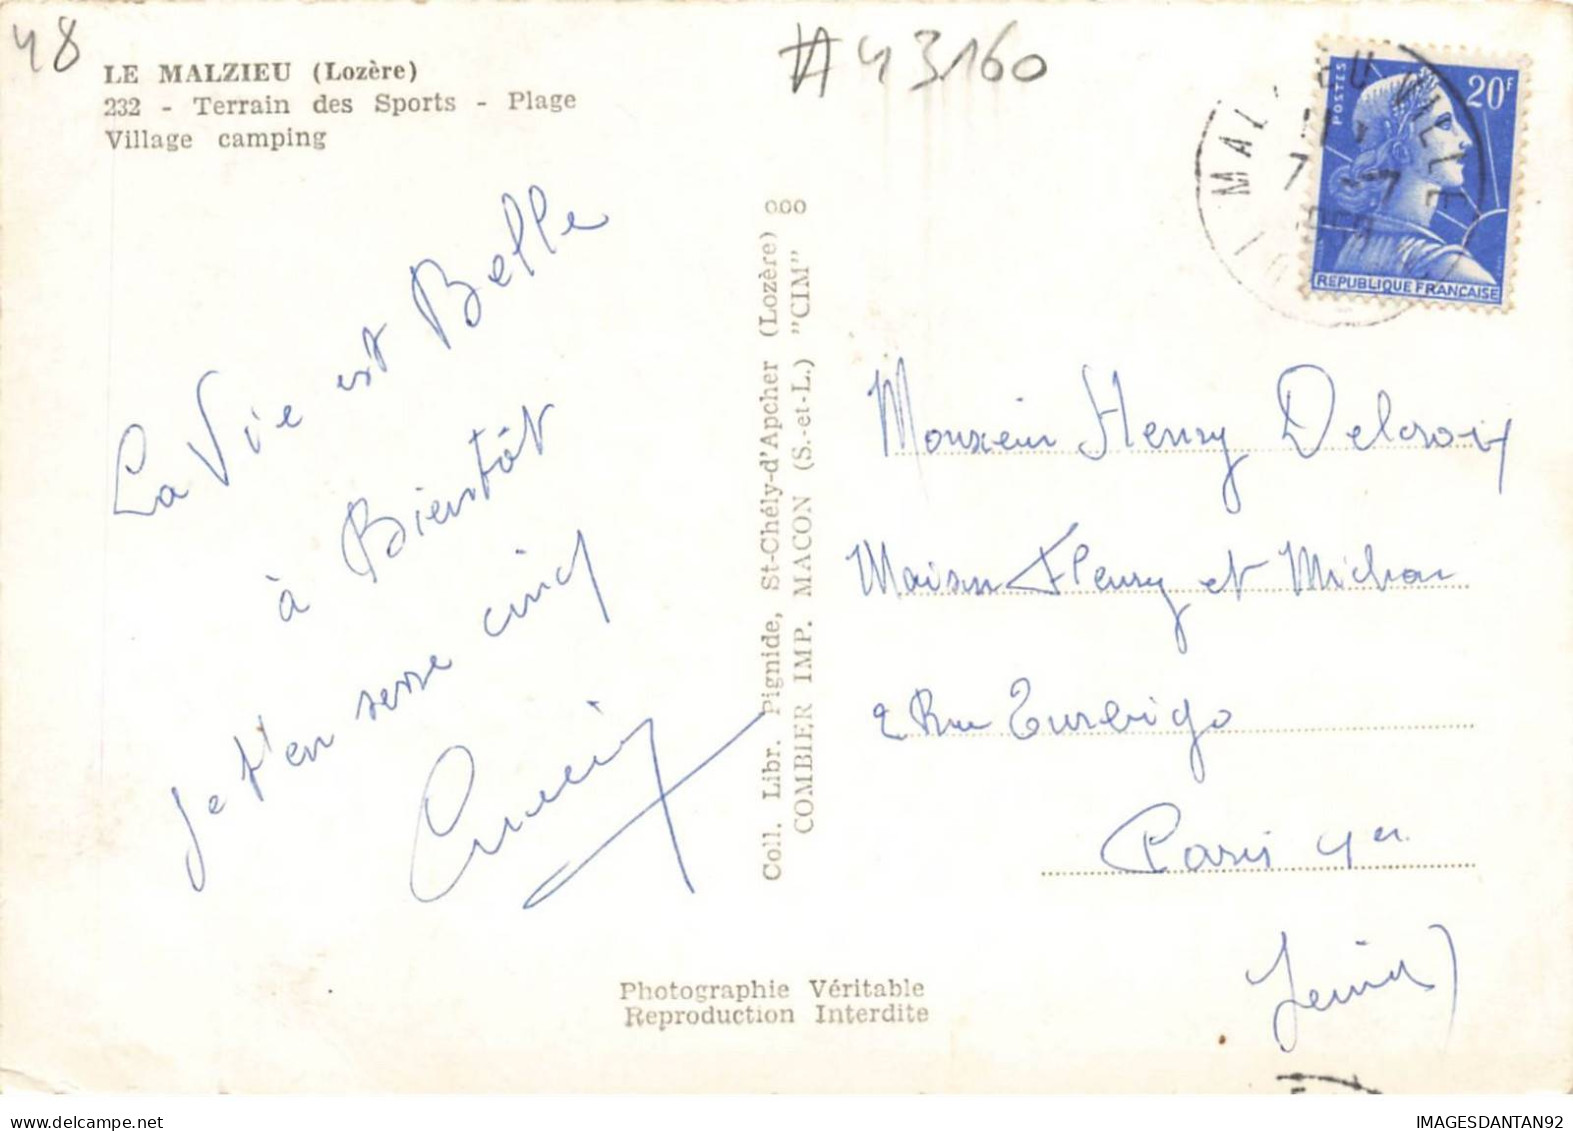 48
LE MALZIEU (Lozère)
232 - Terrain des Sports - Plage
Village camping
#43160
20F
POSTES
REPUBLIQUE FRANÇAISE
7 -7
1959
La Vie est Belle
à Bientôt
Je t'en serre cinq
Coll. Libr. Pignide, St-Chély-d'Apcher (Lozère)
COMBIER IMP. MACON (S.-et-L.) "CIM"
Monsieur Henry Delcroix
Maison Fleury et Michon
2 Rue Turbigo
Paris 1er
Photographie Véritable
Reproduction Interdite
IMAGESDANTAN92